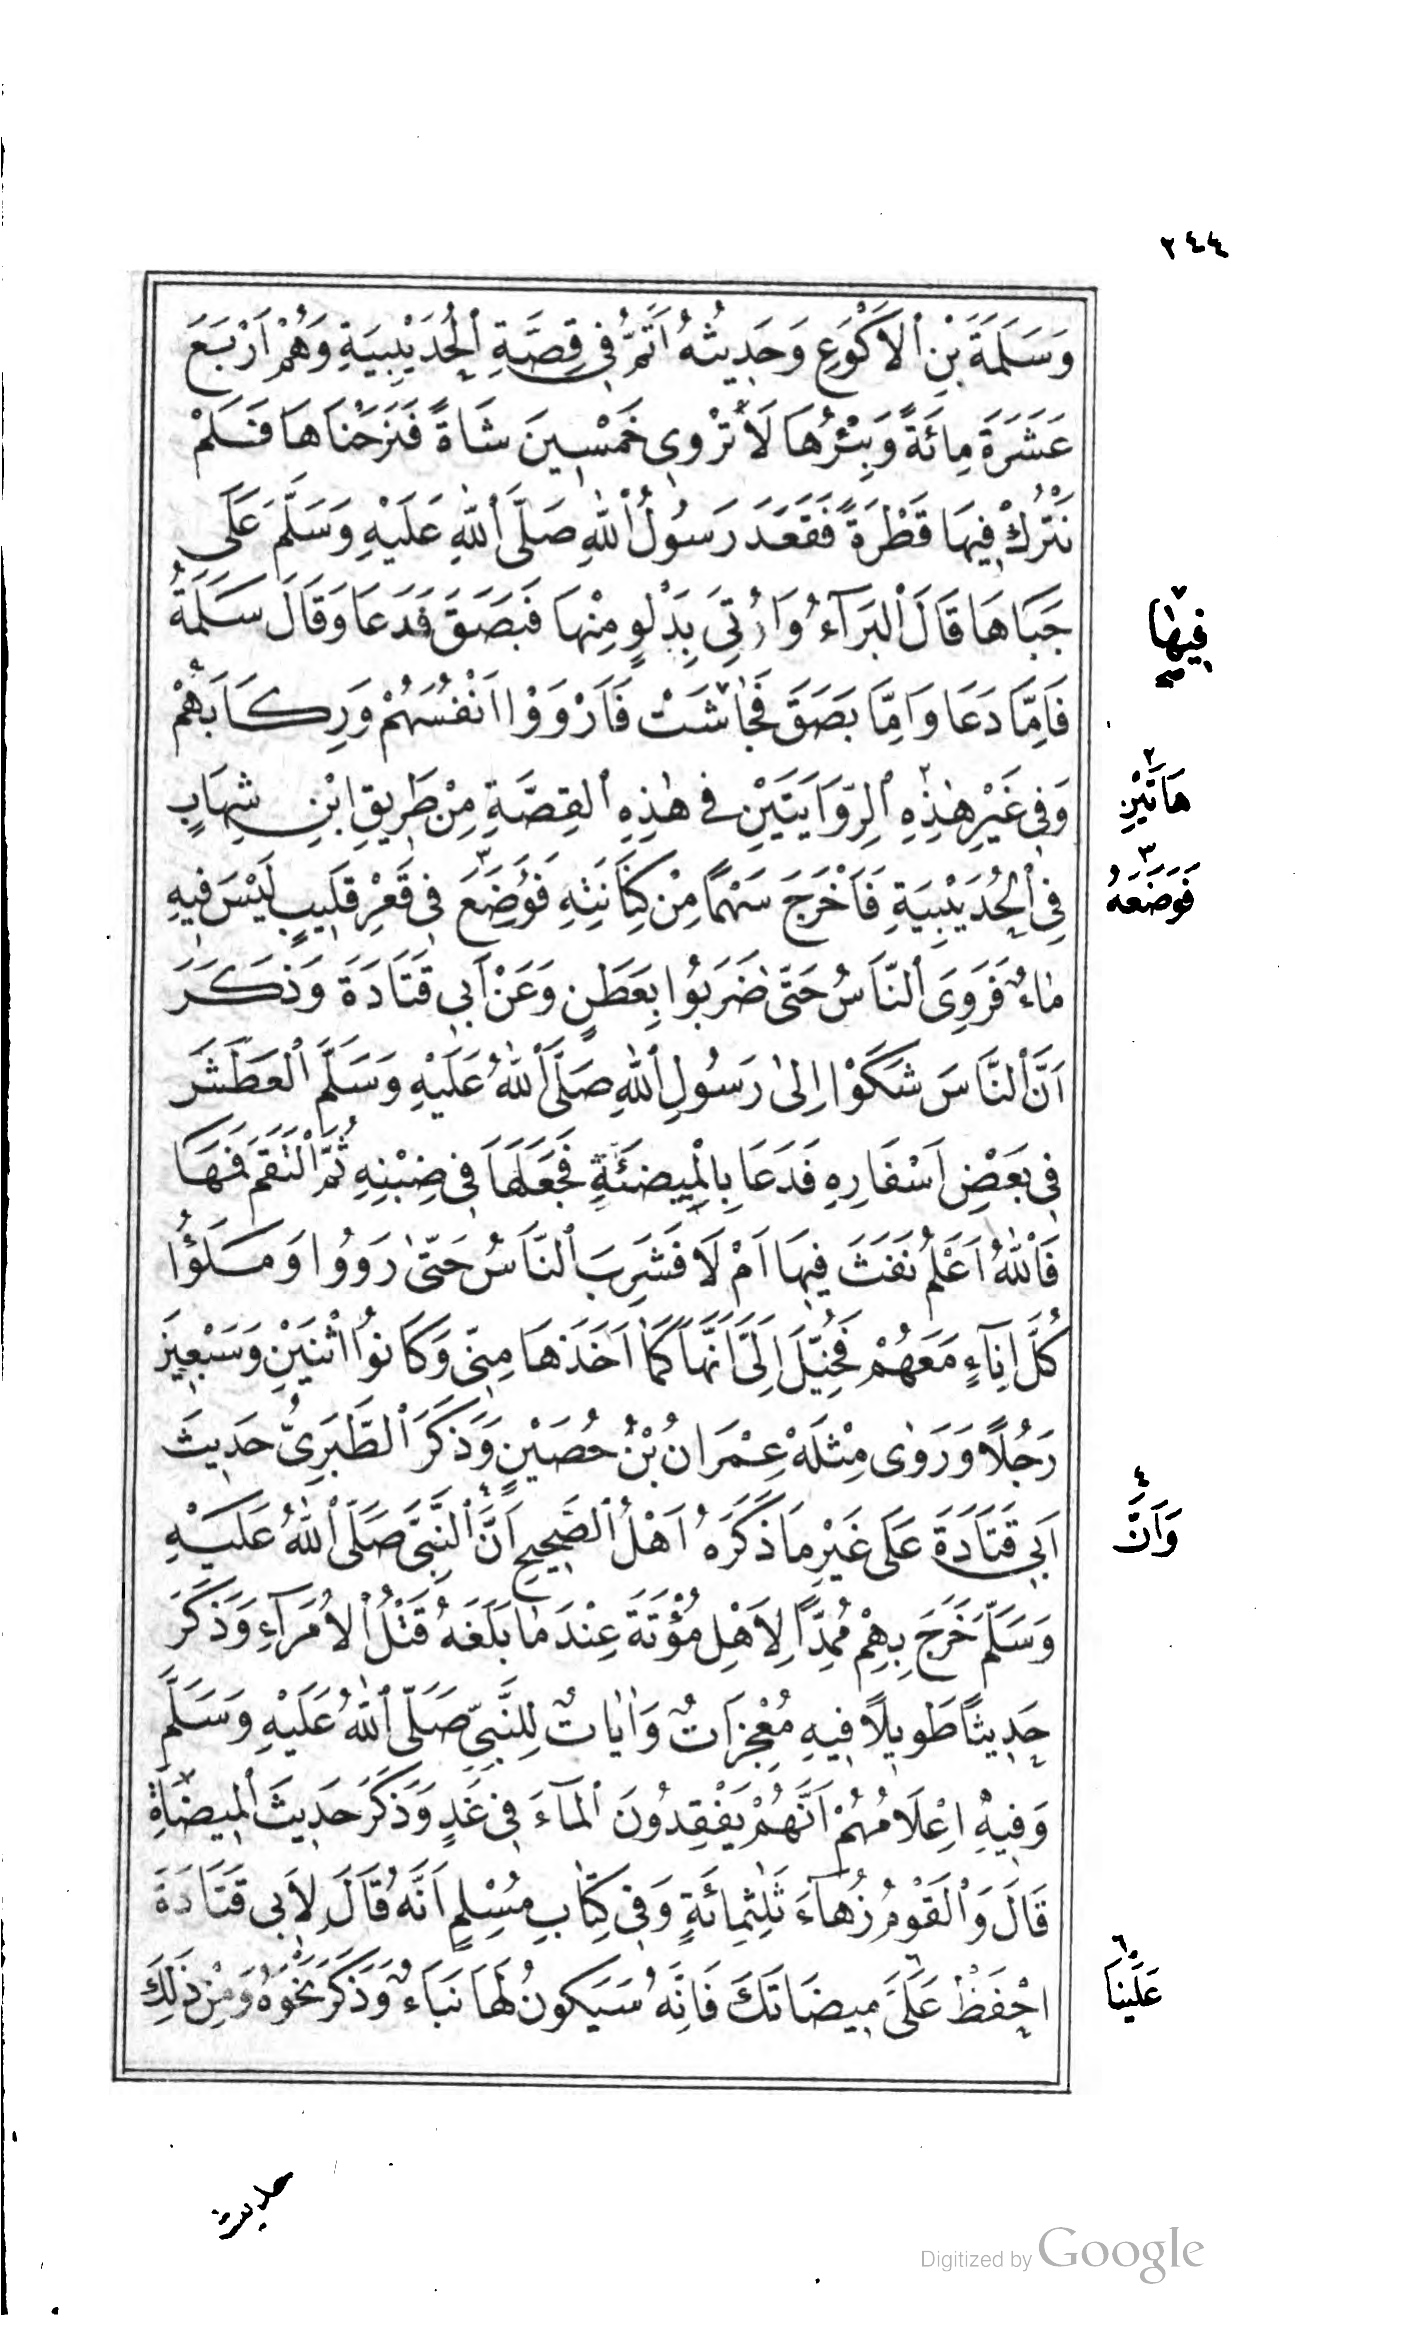 ٢٤٤
وَسَلَمَةَ بْنِ الْاَكْوَعِ وَحَدِيثُهُ اَتَمُّ فِي قِصَّةِ الْحُدَيْبِيَةِ وَهُمْ اَرْبَعَ
عَشَرَةَ مِائَةً وَبِئْرُهَا لَا تَرْوِى خَمْسِينَ شَاةً فَنَزَحْنَاهَا فَلَمْ
نَتْرُكْ فِيهَا قَطْرَةً فَقَعَدَ رَسُولُ اللهِ صَلَّى اللهِ عَلَيْهِ وَسَلَّمَ عَلَى
جَبَاهَا قَالَ الْبَرَآءُ وَاُتِيَ بِدَلْوٍ مِنْهَا فَبَصَقَ فَدَعَا وَقَالَ سَلَمَةُ
فَاِمَّا دَعَا وَاِمَّا بَصَقَ فَجَاشَتْ فَاَرْوَوْا اَنْفُسَهُمْ وَرِكَابَهُمْ
وَفِي غَيْرِ هٰذِهِ الرِّوَايَتَيْنِ فِي هٰذِهِ الْقِصَّةِ مِنْ طَرِيقِ ابْنِ شِهَابٍ
فِي الْحُدَيْبِيَةِ فَاَخْرَجَ سَهْمًا مِنْ كِنَانَتِهِ فَوُضِعَ فِي قَعْرِ قَلِيبٍ لَيْسَ فِيهِ
مَاءٌ فَرَوِىَ النَّاسُ حَتّٰى ضَرَبُوا بِعَطَنٍ وَعَنْ اَبِي قَتَادَةَ وَذَكَرَ
اَنَّ النَّاسَ شَكَوْا اِلٰى رَسُولِ اللهِ صَلَّى اللهُ عَلَيْهِ وَسَلَّمَ الْعَطَشَ
فِي بَعْضِ اَسْفَارِهِ فَدَعَا بِالْمِيضَئَةِ فَجَعَلَهَا فِي ضِبْنِهِ ثُمَّ الْتَقَمَ فَمَهَا
فَاللهُ اَعْلَمُ نَفَثَ فِيهَا اَمْ لَا فَشَرِبَ النَّاسُ حَتّٰى رَوُوا وَمَلَؤُا
كُلَّ اِنَاءٍ مَعَهُمْ فَخُيِّلَ اِلَىَّ اَنَّهَا كَمَا اَخَذَهَا مِنّي وَكَانُوا اثْنَيْنِ وَسَبْعِينَ
رَجُلًا وَرَوٰى مِثْلَهُ عِمْرَانُ بْنُ حُصَيْنٍ وَذَكَرَ الطَّبَرِيُّ حَدِيثَ
اَبِي قَتَادَةَ عَلَى غَيْرِ مَا ذَكَرَهُ اَهْلُ الصَّحِيحِ اَنَّ النَّبِىَّ صَلَّى اللهُ عَلَيْهِ
وَسَلَّمَ خَرَجَ بِهِمْ مُمِدًّا لِاَهْلِ مُؤْتَةَ عِنْدَ مَا بَلَغَهُ قَتْلُ الْاُمَرَآءِ وَذَكَرَ
حَدِيثًا طَوِيلًا فِيهِ مُعْجِزَاتٌ وَاٰيَاتٌ لِلنَّبِيِّ صَلَّى اللهُ عَلَيْهِ وَسَلَّمَ
وَفِيهِ اِعْلَامُهُمْ اَنَّهُمْ يَفْقِدُونَ الْمَآءَ فِي غَدٍ وَذَكَرَ حَدِيثَ الْمِيضَاةِ
قَالَ وَالْقَوْمُ زُهَآءَ ثَلٰثِمِائَةٍ وَفِي كِتَابِ مُسْلِمٍ اَنَّهُ قَالَ لِاَبِي قَتَادَةَ
احْفَظْ عَلَىَّ مِيضَاتَكَ فَاِنَّهُ سَيَكُونُ لَهَا نَبَاءٌ وَذَكَرَ نَحْوَهُ وَمِنْ ذٰلِكَ
٧ فِيهَا
٢ هَاتَيْنِ
٣ فَوَضَعَهُ
٤ وَاَنَّ
٦ عَلَيْنَا
حديث
Digitized by Google